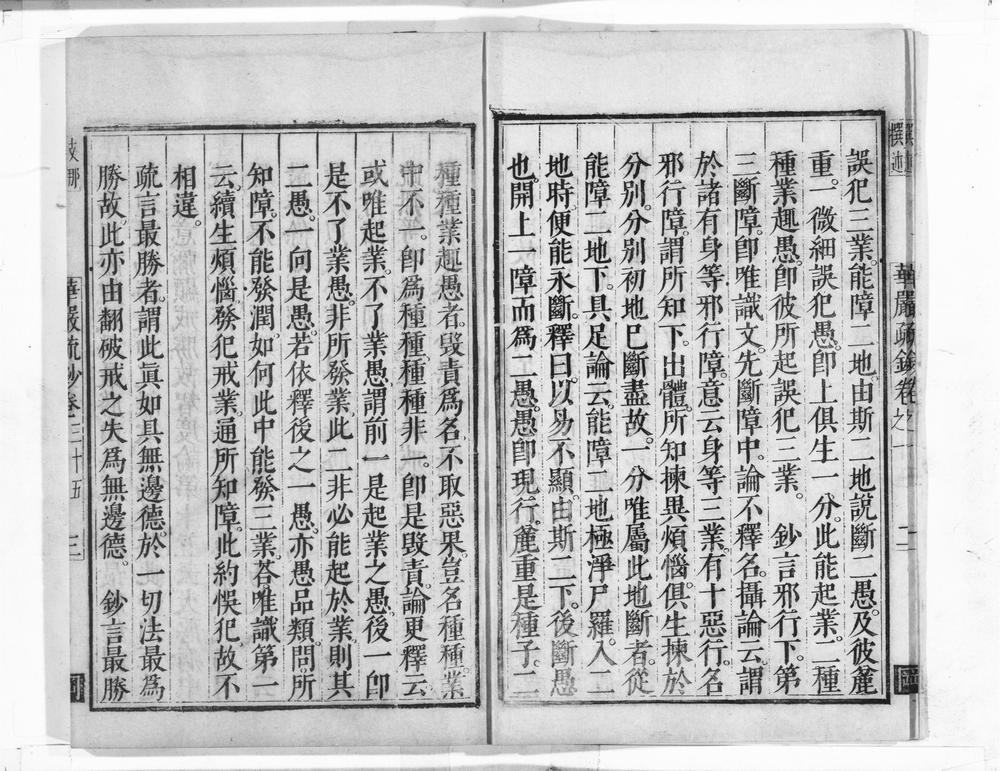 誤犯三業。能障二地。由斯二地說斷二愚。及彼麄
重。一微細誤犯愚。卽上俱生一分。此能起業。二種
種業趣愚。卽彼所起誤犯三業。　鈔言邪行下。第
三斷障。卽唯識文。先斷障中。論不釋名。攝論云。謂
於諸有身等邪行障。意云身等三業。有十惡行。名
邪行障。謂所知下。出體。所知揀異煩惱。俱生揀於
分別。分別初地已斷盡故。一分唯屬此地斷者。從
能障二地下。具足論云。能障二地極淨尸羅。入二
地時便能永斷。釋曰。以易不顯。由斯二下。後斷愚
也。開上一障而爲二愚。愚卽現行。麄重是種子。二
種種業趣愚者。毀責爲名。不取惡果。豈名種種。業
中不一。卽爲種種。種種非一。卽是毀責。論更釋云。
或唯起業。不了業愚。謂前一是起業之愚。後一卽
是不了業愚。非所發業。此二非必能起於業。則其
二愚。一向是愚。若依釋後之一愚。亦愚品類。問。所
知障。不能發潤。如何此中能發三業。荅。唯識第一
云。續生煩惱。發犯戒業。通所知障。此約悞犯。故不
相違。
疏言最勝者。謂此眞如具無邊德。於一切法最爲
勝故。此亦由翻破戒之失爲無邊德。　鈔言最勝
撰述
華嚴疏鈔卷之一
二
支那
華嚴疏鈔卷三十五
三